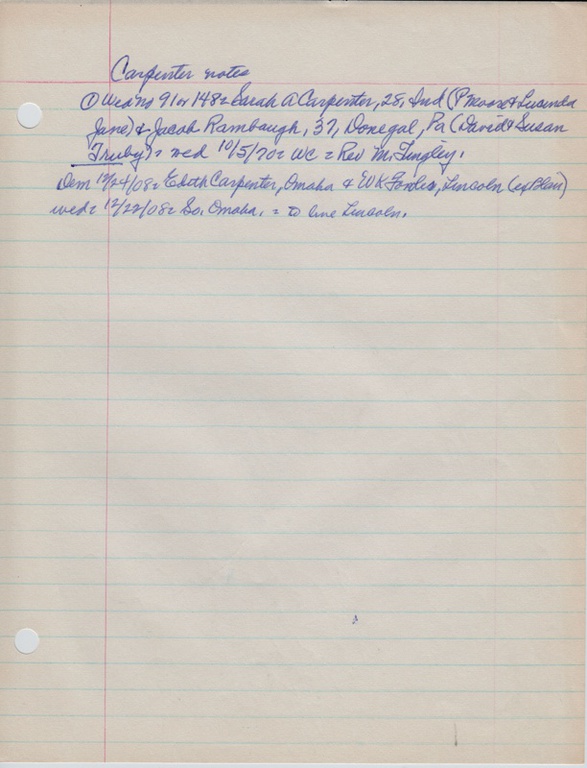 Carpenter notes
① Wed no 91 or 148 = Sarah A Carpenter, 28, Ind (P Moore & Lucinda
Jane) & Jacob Rambaugh, 37, Donegal, Pa (David & Susan
Truby) = wed 10/5/70 = WC = Rev M. Tingley.
Dem 12/24/08 = Edith Carpenter, Omaha & WK Fowler, Lincoln (ex Blair)
wed = 12/22/08 = So. Omaha. = to live Lincoln.